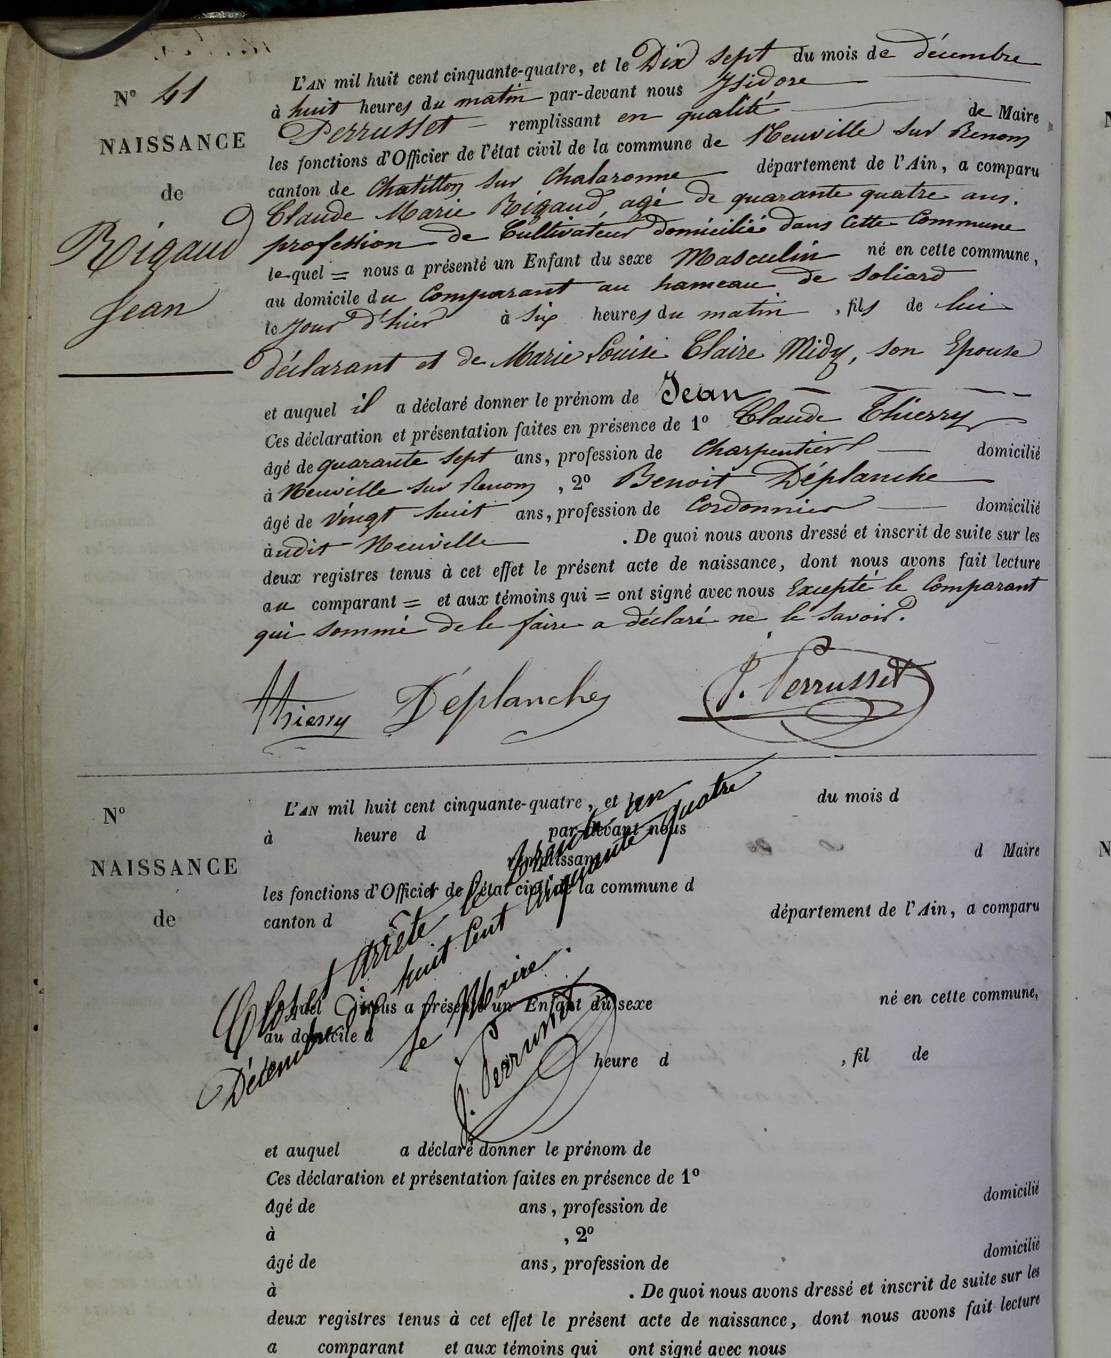 N° 41
NAISSANCE
de
Rigaud
Jean
L'AN mil huit cent cinquante-quatre, et le Dix sept du mois de décembre
à huit heures du matin par-devant nous Isidore
Perrusset remplissant en qualité de Maire
les fonctions d'Officier de l'état civil de la commune de Neuville sur Renom
canton de Chatillon sur Chalaronne département de l'Ain, a comparu
Claude Marie Rigaud, agé de quarante quatre ans.
profession de Cultivateur domicilié dans cette Commune
lequel = nous a présenté un Enfant du sexe Masculin né en cette commune,
au domicile du Comparant au hameau de Soliard
le jour d'hier à six heures du matin, fils de lui
déclarant et de Marie Louise Claire Midy, son Epouse
et auquel il a déclaré donner le prénom de Jean
Ces déclaration et présentation faites en présence de 1° Claude Thierry
âgé de quarante sept ans, profession de Charpentier domicilié
à Neuville sur Renom, 2° Benoit Déplanche
âgé de vingt huit ans, profession de Cordonnier domicilié
audit Neuville. De quoi nous avons dressé et inscrit de suite sur les
deux registres tenus à cet effet le présent acte de naissance, dont nous avons fait lecture
au comparant = et aux témoins qui = ont signé avec nous Excepté le Comparant
qui sommé de le faire a déclaré ne le savoir.
Thierry Déplanche J. Perrusset
N°
NAISSANCE
de
L'AN mil huit cent cinquante-quatre, et le du mois d
à heure d par-devant nous
remplissant d Maire
les fonctions d'Officier de l'état civil de la commune d
canton d département de l'Ain, a comparu
quel nous a présenté un Enfant du sexe né en cette commune,
au domicile d
heure d , fil de
Clos et Arrêté le trente un
Décembre dix huit cent cinquante quatre
Le Maire.
J. Perrusset
et auquel a déclaré donner le prénom de
Ces déclaration et présentation faites en présence de 1°
âgé de ans, profession de domicilié
à , 2°
âgé de ans, profession de domicilié
à . De quoi nous avons dressé et inscrit de suite sur les
deux registres tenus à cet effet le présent acte de naissance, dont nous avons fait lecture
a comparant et aux témoins qui ont signé avec nous